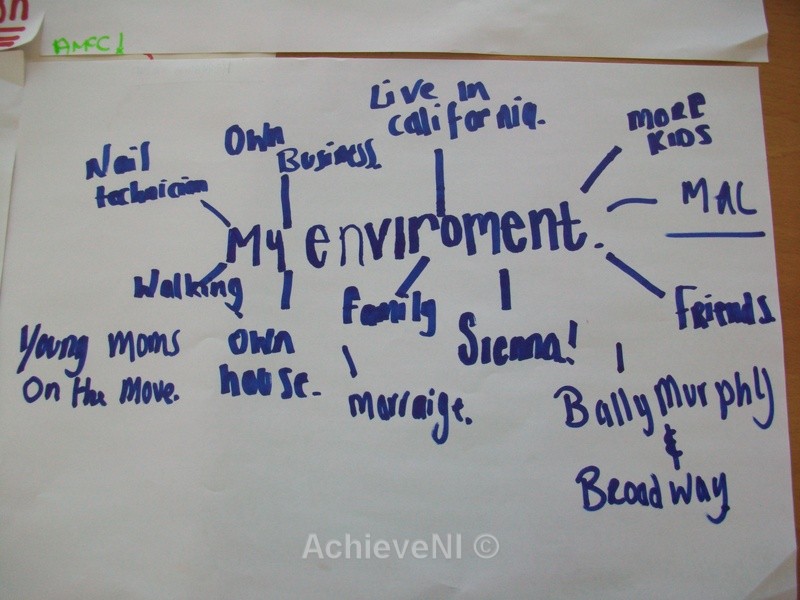 AMFC!
Live in
california.
Own
Business
Nail
technician
MORE
KIDS
MAC
My enviroment.
Walking
Family
Friends
Sienna!
Young moms
On the Move.
Own
house.
Marraige.
Bally Murphy
&
Broadway
AchieveNI ©